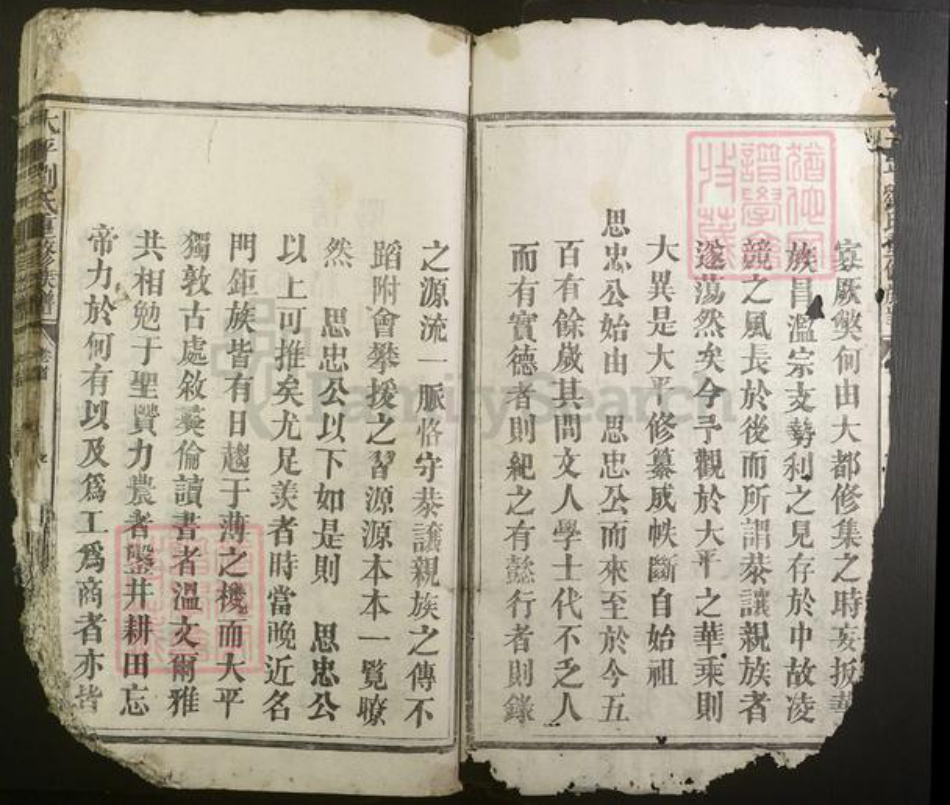 家厥獘何由大都修集之時妄扳華
族昌溫宗支勢利之見存於中故凌
競之風長於後而所謂恭讓親族者
遂蕩然矣今予觀於大平之華乘則
大異是大平修纂成帙斷自始祖
思忠公始由 思忠公而來至於今五
百有餘歲其間文人學士代不乏人
而有實德者則紀之有懿行者則錄
之源流一脈恪守恭讓親族之傳不
蹈附會攀援之習源源本本一覧瞭
然 思忠公以下如是則 思忠公
以上可推矣尤足羡者時當晚近名
門鉅族皆有日趨于薄之機而大平
獨敦古處敘彜倫讀書者溫文爾雅
共相勉于聖贒力農者鑿井耕田忘
帝力於何有以及爲工爲商者亦皆
大平劉氏重修族譜 卷首
FamilySearch